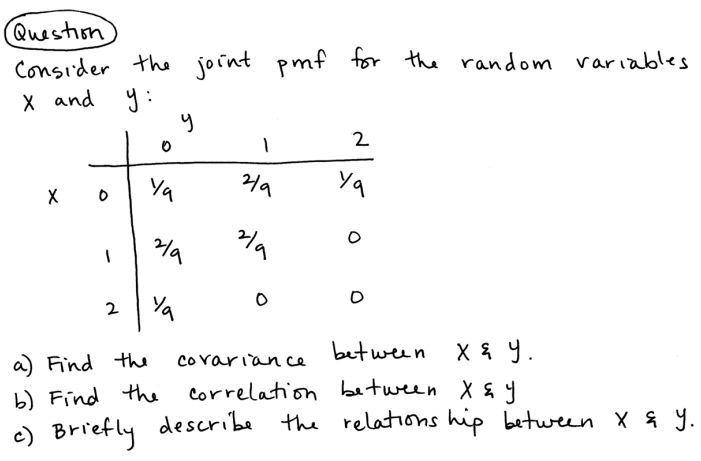 Question
Consider the joint pmf for the random variables
X and y:
y
0 1 2
X 0 1/9 2/9 1/9
1 2/9 2/9 0
2 1/9 0 0
a) Find the covariance between X & y.
b) Find the correlation between X & y
c) Briefly describe the relationship between X & y.